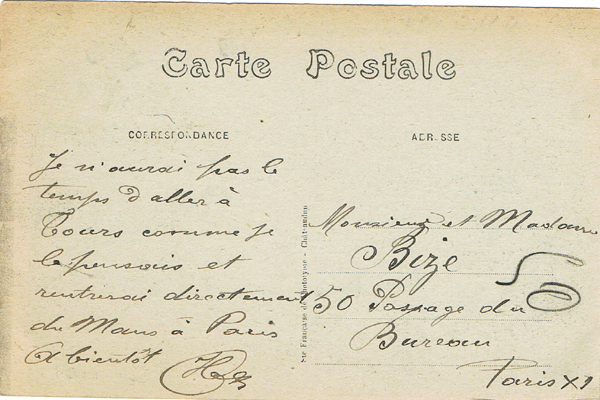 Carte Postale
CORRESPONDANCE
ADRESSE
Je n'aurai pas le
temps d'aller à
Tours comme je
le pensais et
rentrerai directement
du Mans à Paris
A bientôt
Monsieur et Madame
Bize
50 Passage du
Bureau
Paris XI
50
Sté Française de Phototypie - Châteaudun